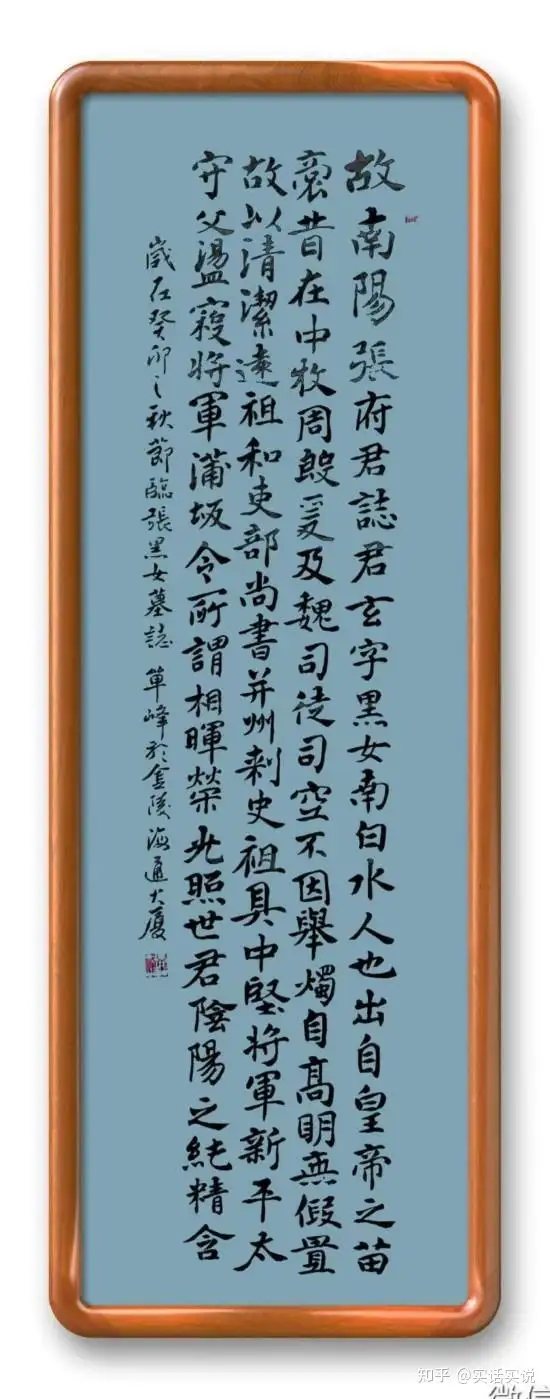 故南陽張府君誌君玄字黑女南白水人也出自皇帝之苗
裔昔在中牧周殷爰及魏司徒司空不因舉燭自高明無假置
故以清潔遠祖和吏部尚書并州刺史祖具中堅將軍新平太
守父盪寇將軍蒲坂令所謂相暉榮光照世君陰陽之純精含
歲在癸卯之秋節臨張黑女墓誌 單峰於金陵海通大廈
知乎 @实话实说